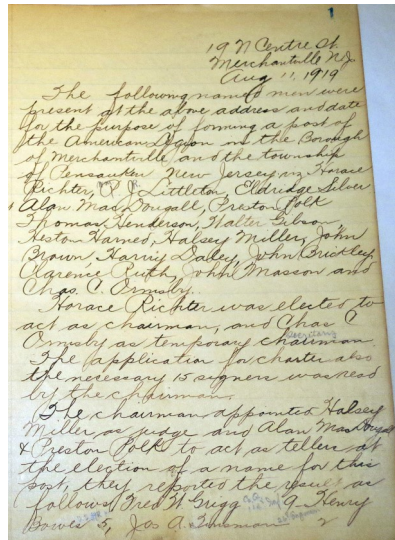 1
19 N Centre St
Merchantville N.J.
Aug 11, 1919
The following named men were
present at the above address and date
for the purpose of forming a post of
the American Legion in the Borough
of Merchantville and the township
of Pensauken New Jersey, viz, Horace
Richter, Littleton, Eldredge Silver
Alan MacDougall, Preston Polk
Thomas Henderson, Walter Gibson
Heston Harned, Halsey Miller, John
Brown, Harry Daley, John Brickley,
Clarence Ruth, John Masson and
Chas. C. Ormsby.
Horace Richter was elected to
act as chairman, and Chas C
Ormsby as temporary chairman
secretary
The application for charter also
the necessary 15 signers was read
by the chairman.
The chairman appointed Halsey
Miller as judge and Alan MacDougall
& Preston Polk to act as tellers at
the election of a name for this
post, they reported the result as
follows, Fred W Grigg G. Henry
Bowes 5, Jos A. 2